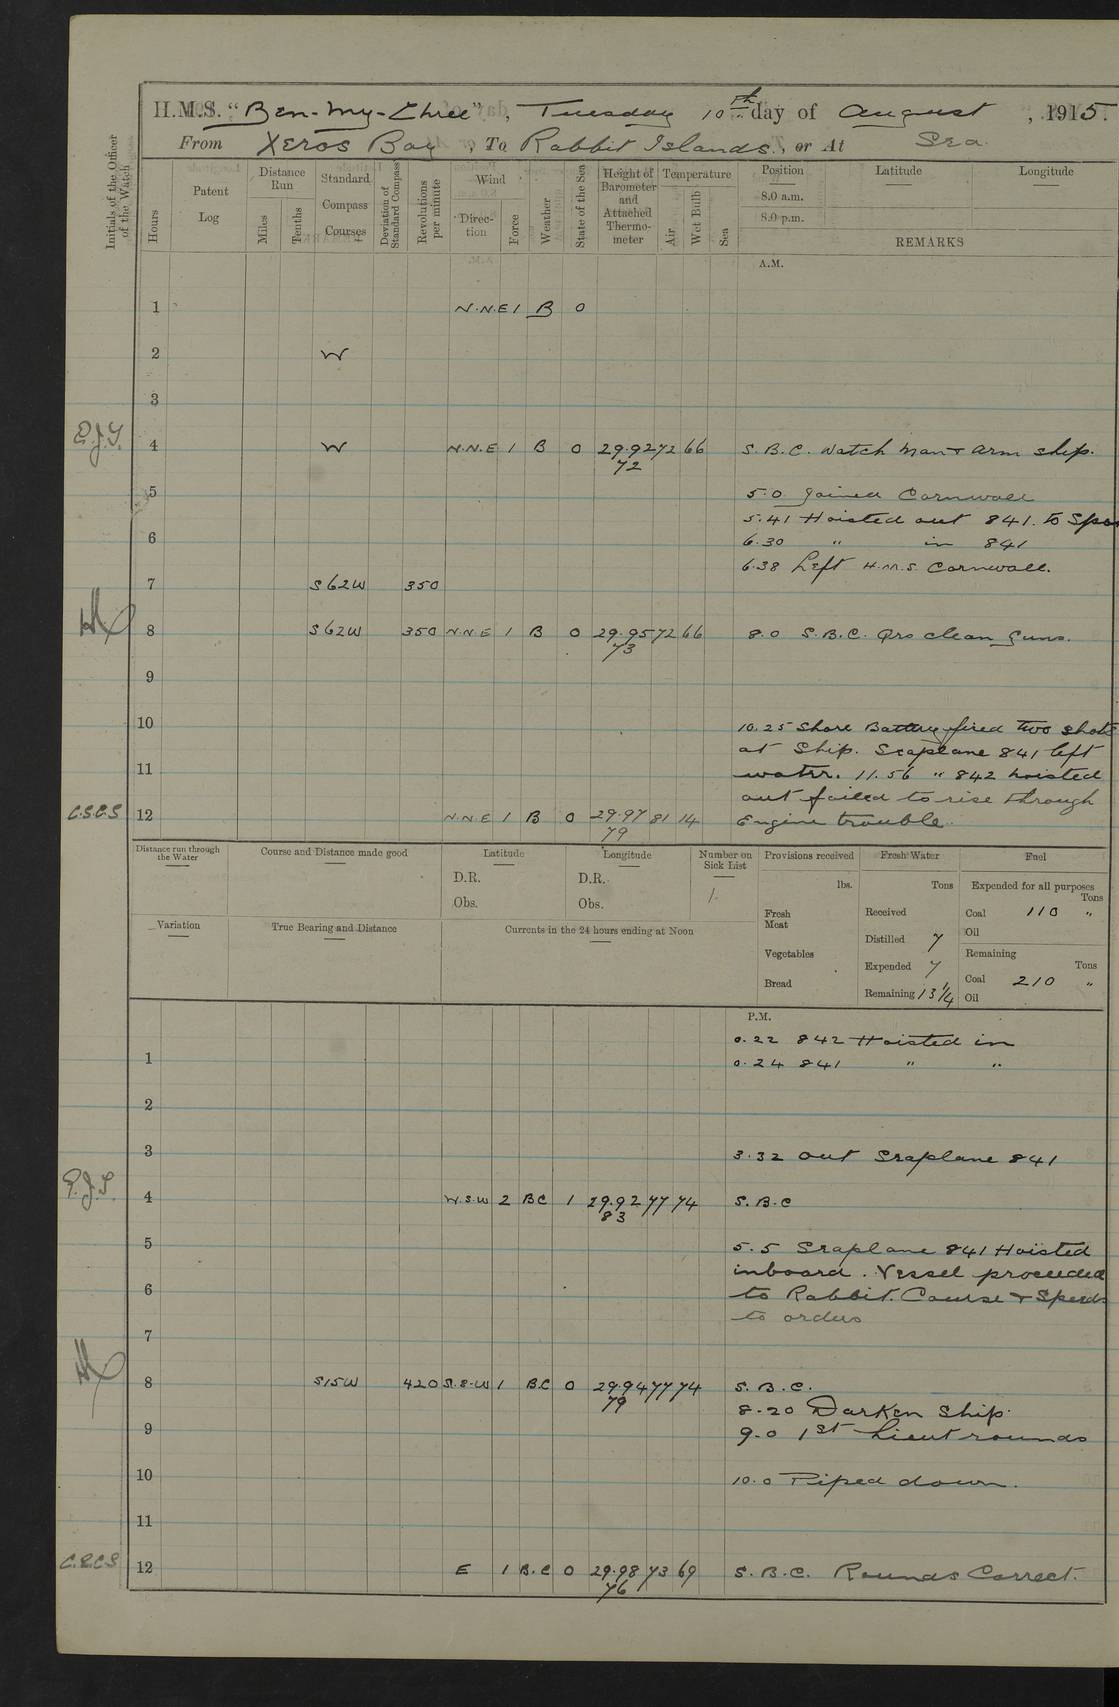 H.M.S. "Ben-My-Chree", Tuesday 10th day of August, 1915.
From Xeros Bay, To Rabbit Islands, or At Sea.
Initials of the Officer of the Watch
Hours
Patent Log
Distance Run
Miles
Tenths
Standard Compass Courses
Deviation of Standard Compass
Revolutions per minute
Wind
Direction
Force
Weather
State of the Sea
Height of Barometer and Attached Thermometer
Temperature
Air
Wet Bulb
Sea
Position
Latitude
Longitude
8.0 a.m.
8.0 p.m.
REMARKS
A.M.
1 N.N.E 1 B 0
2 W
3
4 W N.N.E 1 B 0 29.92 72 66 S.B.C. Watch man & arm ship.
72
5 5.0 Joined Cornwall
5.41 Hoisted out 841. to
6 6.30 " in 841
6.38 Left H.M.S. Cornwall.
7 S62W 350
8 S62W 350 N.N.E 1 B 0 29.95 72 66 8.0 S.B.C. Qrs clean Guns.
73
9
10
10.25 Shore Battery fired two shots
at Ship. Seaplane 841 left
11 water. 11.56 " 842 hoisted
out failed to rise through
C.S.C.S 12 N.N.E 1 B 0 29.97 81 14 Engine trouble.
79
Distance run through the Water
Course and Distance made good
Latitude
D.R.
Obs.
Longitude
D.R.
Obs.
Number on Sick List
1.
Provisions received
lbs.
Fresh Meat
Vegetables
Bread
Fresh Water
Tons
Received
Distilled 7
Expended 7
Remaining 13 1/4
Fuel
Expended for all purposes
Tons
Coal 110 "
Oil
Remaining
Tons
Coal 210 "
Oil
Variation
True Bearing and Distance
Currents in the 24 hours ending at Noon
P.M.
0.22 842 Hoisted in
1 0.24 841 " "
2
3 3.32 out Seaplane 841
4 W.S.W 2 BC 1 29.92 77 74 S.B.C
83
5 5.5 Seaplane 841 Hoisted
inboard. Vessel proceeded
6 to Rabbit. Course & Speeds
to orders
7
8 S15W 420 S.S.W 1 B.C 0 29.94 77 74 S.B.C.
79
8.20 Darken Ship.
9 9.0 1st Lieut rounds
10 10.0 Piped down.
11
12 E 1 B.C 0 29.98 73 69 S.B.C. Rounds Correct.
76